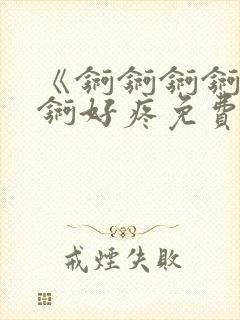 《錒錒錒錒
錒好疼免費
戒煙失敗